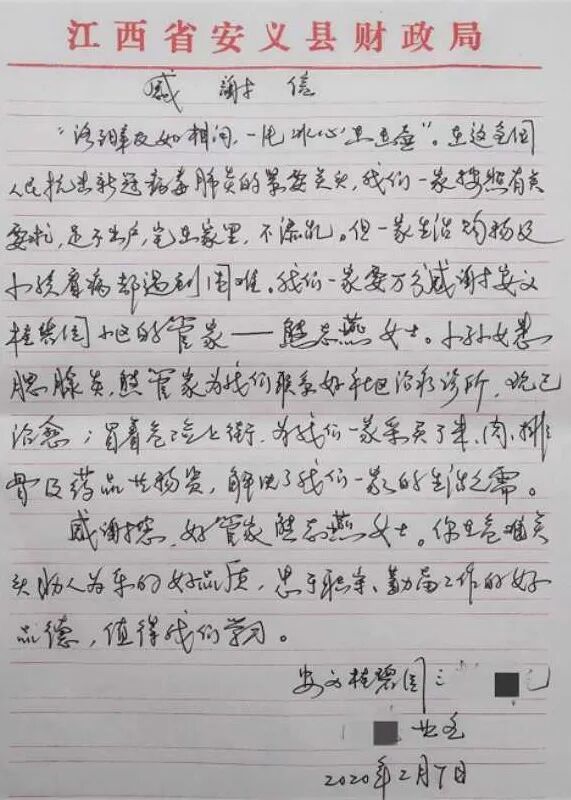 江西省安义县财政局
感谢信
“洛阳亲友如相问,一片冰心在玉壶”。在这全国
人民抗击新冠病毒肺炎的紧要关头,我们一家按照有关
要求,足不出户,宅在家里,不添乱。但一家生活购物及
小孩看病都遇到困难。我们一家要万分感谢安义
桂碧园小区的管家——熊志燕女士。小孙女患
腮腺炎,熊管家为我们联系好社区治疗诊所,现已
治愈;冒着危险上街,为我们一家采买了米、肉、排
骨及药品等物资,解决了我们一家的生活之需。
感谢您,好管家熊志燕女士。你在危难关
头助人为乐的好品质,忠于职守、勤奋工作的好
品德,值得我们学习。
安义桂碧园三
业主
2020年2月7日